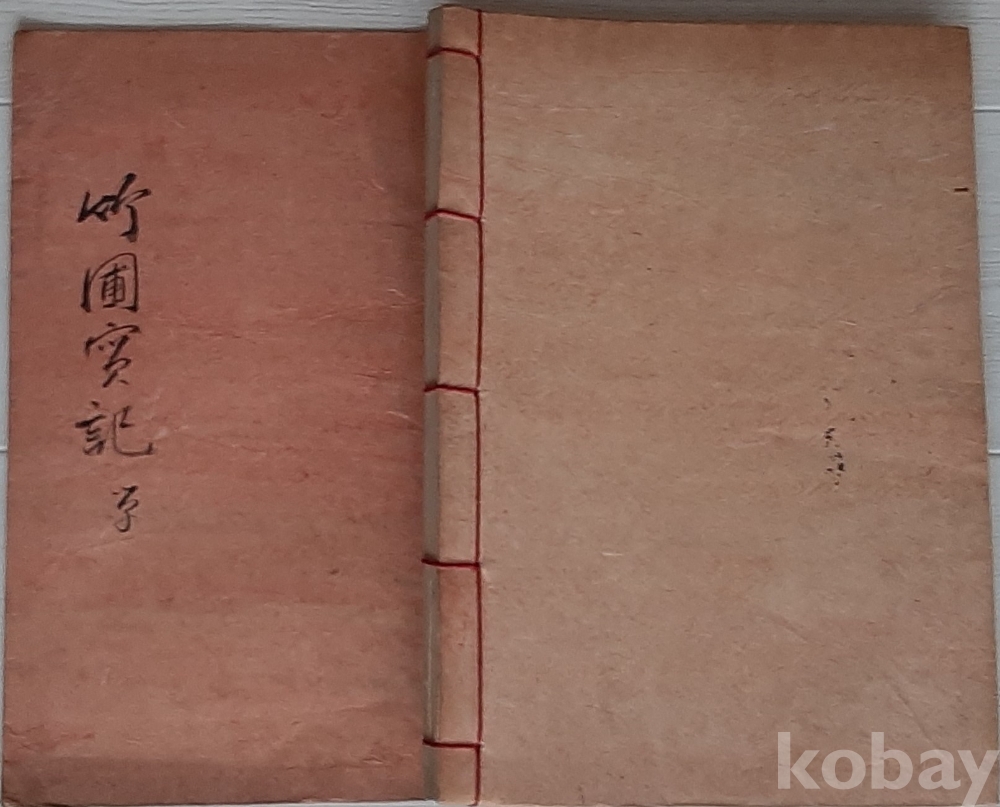 竹圃實記 単
kobay